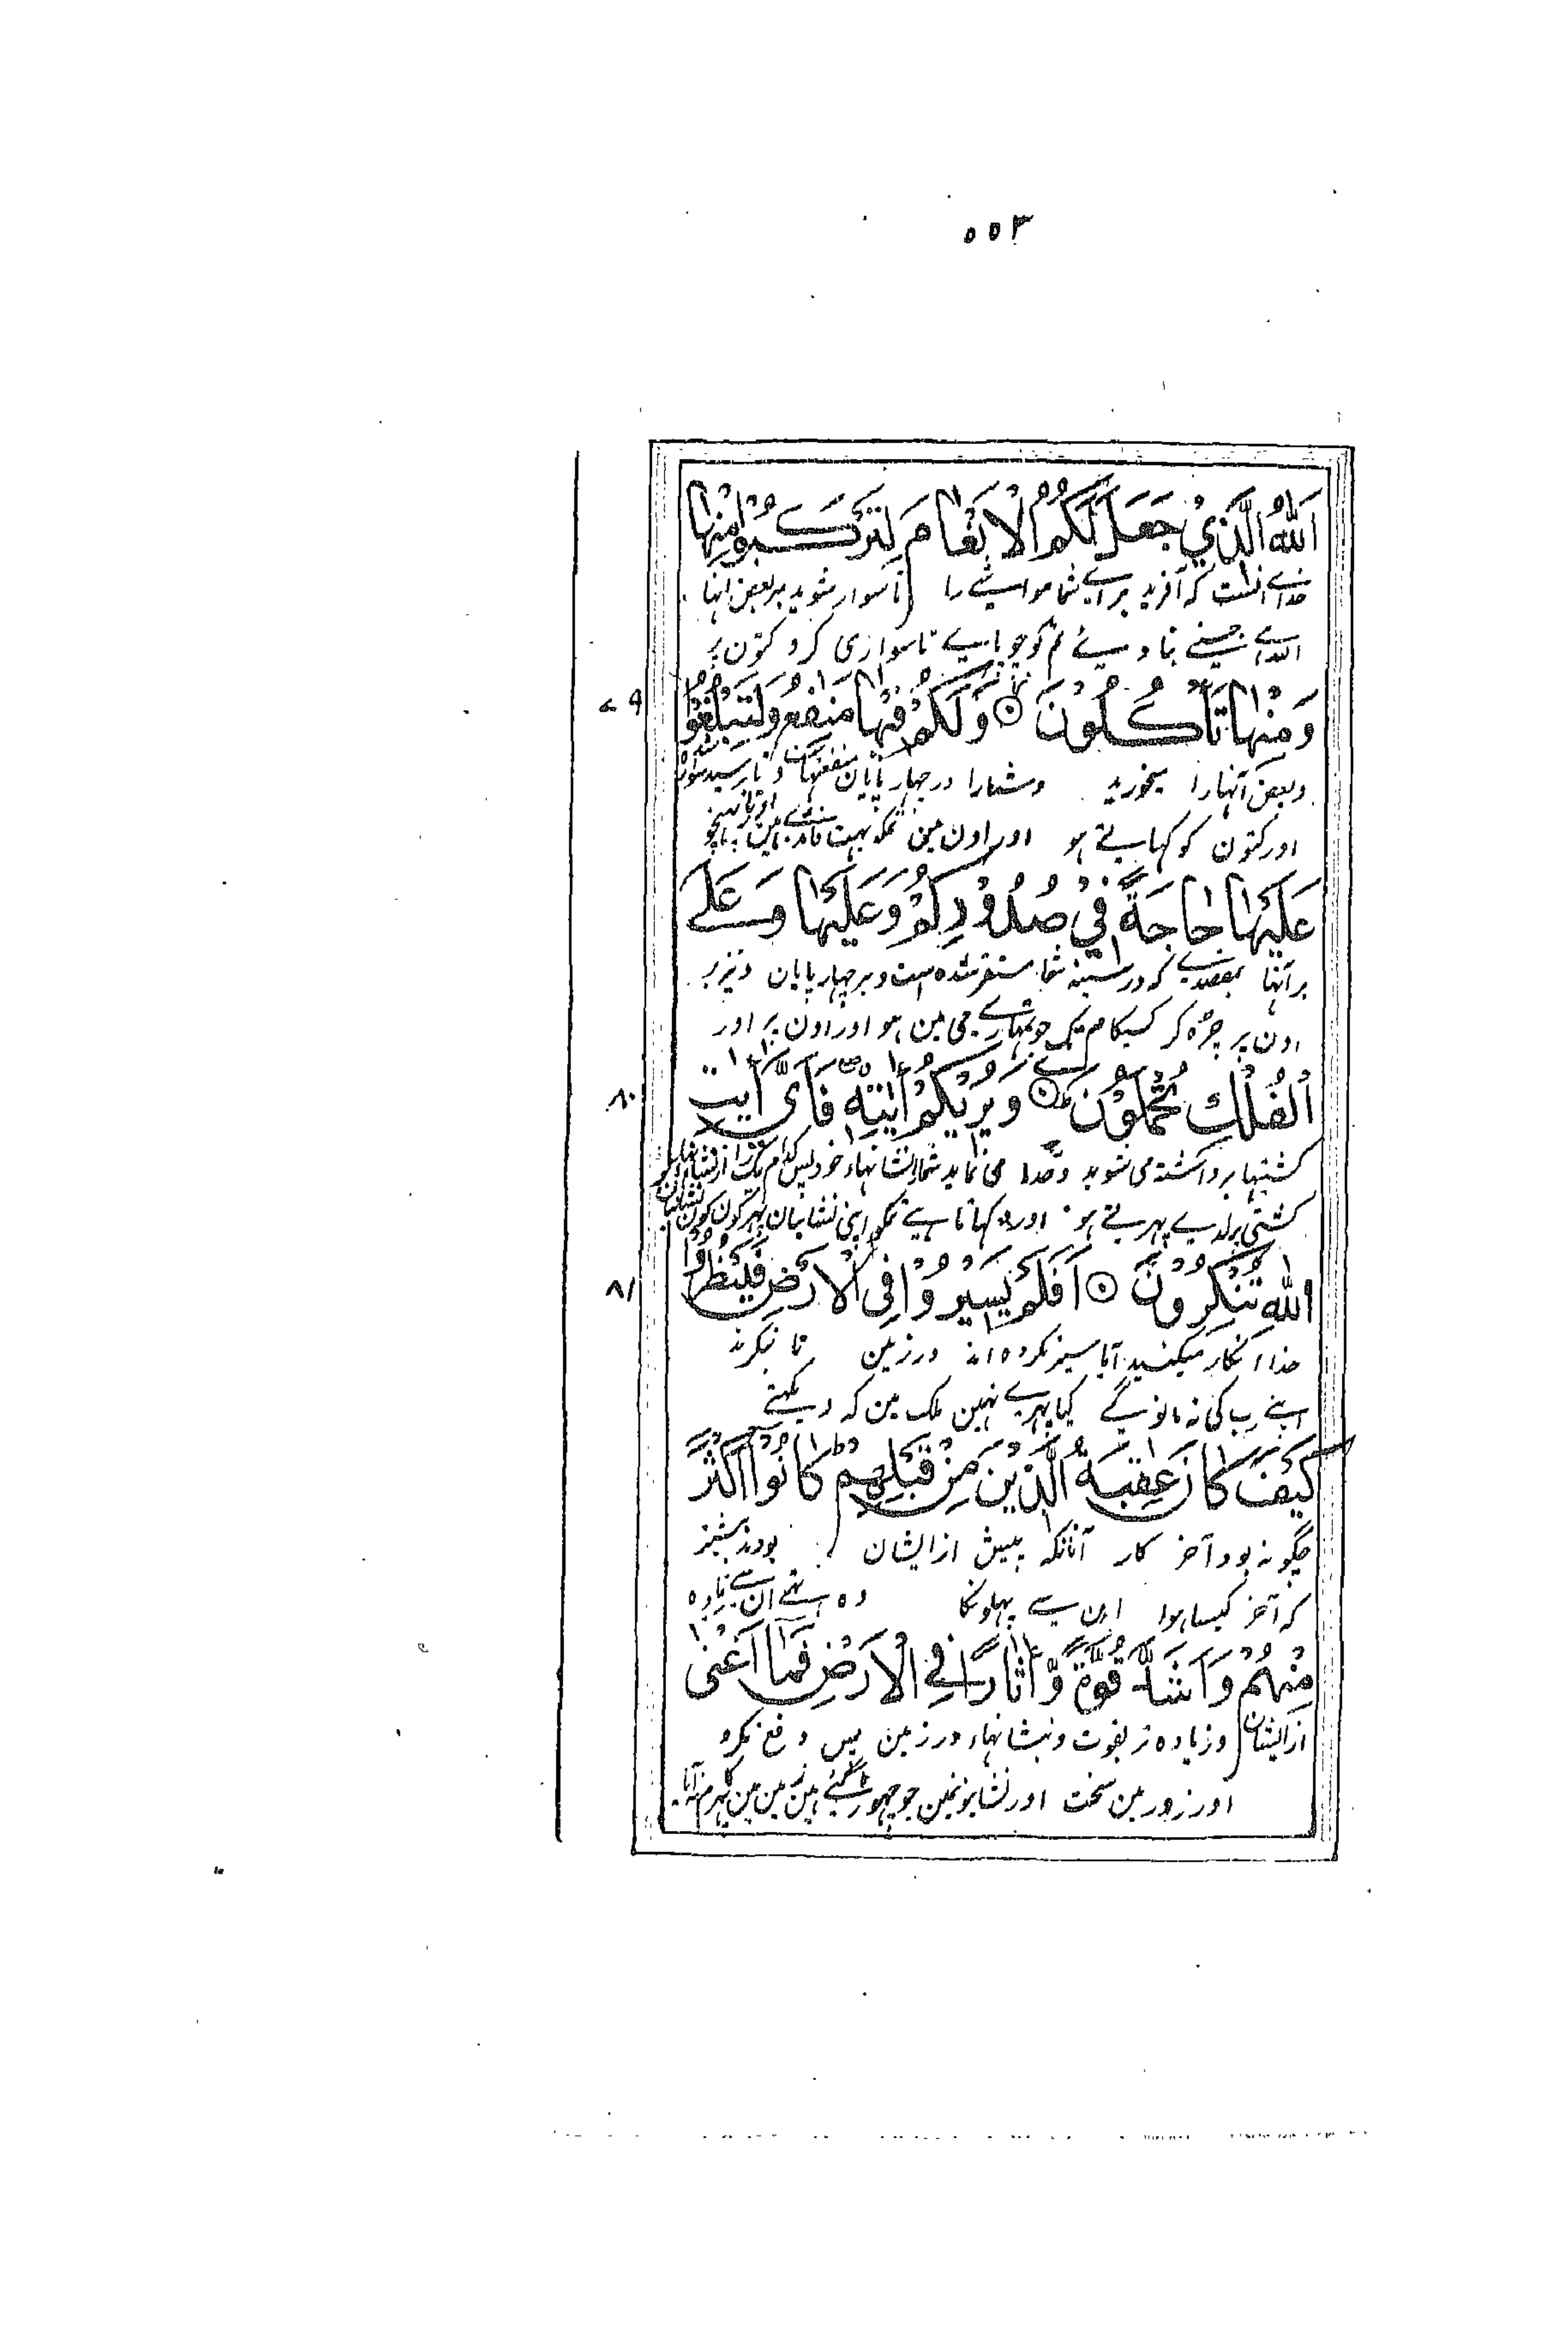 ۵۵۳
اَللّٰهُ الَّذِيْ جَعَلَ لَكُمُ الْاَنْعَامَ لِتَرْكَبُوْا مِنْهَا
خداے آنست که آفرید براے شما مواشے را تا سوار شوید بر بعض انها
اللہ ہے جسنے بنا دیئے تمکو چوپایے تا سواری کرو کتون پر
وَمِنْهَا تَاْكُلُوْنَ ۞ وَلَكُمْ فِيْهَا مَنٰفِعُ وَلِتَبْلُغُوْا
۷۹
و بعض آنها را میخورید و شما را در چهار پایان منفعتهاست و تا برسید
اور کتون کو کہاتے ہو اور اون مین تمکو بہت فائدے ہین
عَلَيْهَا حَاجَةً فِيْ صُدُوْرِكُمْ وَعَلَيْهَا وَعَلَى
بر آنها بمقصدے که در سینه شما مستقر شده است و بر چهار پایان و نیز بر
اون پر چڑہ کر کسی کام تک جو تمہارے جی مین ہو اور اون پر اور
الْفُلْكِ تُحْمَلُوْنَ ۞ وَيُرِيْكُمْ اٰيٰتِهٖ فَاَيَّ اٰيٰتِ
۸۰
کشتیها برداشته می شوید و خدا می نماید شما را نشانهاء خود پس کدام یک را از
کشتی پر لدے پہرتے ہو اور دکہاتا ہے تمکو اپنی نشانیان پہر کون کون
اللّٰهِ تُنْكِرُوْنَ ۞ اَفَلَمْ يَسِيْرُوْا فِى الْاَرْضِ فَيَنْظُرُوْا
۸۱
خدا انکار میکنید آیا سیر نکرده اند در زمین تا بنگرند
اپنے رب کی نہ مانوگے کیا پہرے نہین ملک مین کہ دیکہتے
كَيْفَ كَانَ عٰقِبَةُ الَّذِيْنَ مِنْ قَبْلِهِمْ كَانُوْا اَكْثَرَ
چگونه بود آخر کار آنانکه پیش از ایشان بودند بیشتر
کہ آخر کیسا ہوا ان سے پہلونکا وہ تہے ان سے زیادہ
مِنْهُمْ وَاَشَدَّ قُوَّةً وَّاٰثَارًا فِى الْاَرْضِ فَمَا اَغْنٰى
از ایشان و زیاده تر بقوت و نشانهاء در زمین پس دفع نکرد
اور زور مین سخت اور نشانیونمین جو چہوڑ گئے ہین زمین مین پہر کام نہ آیا